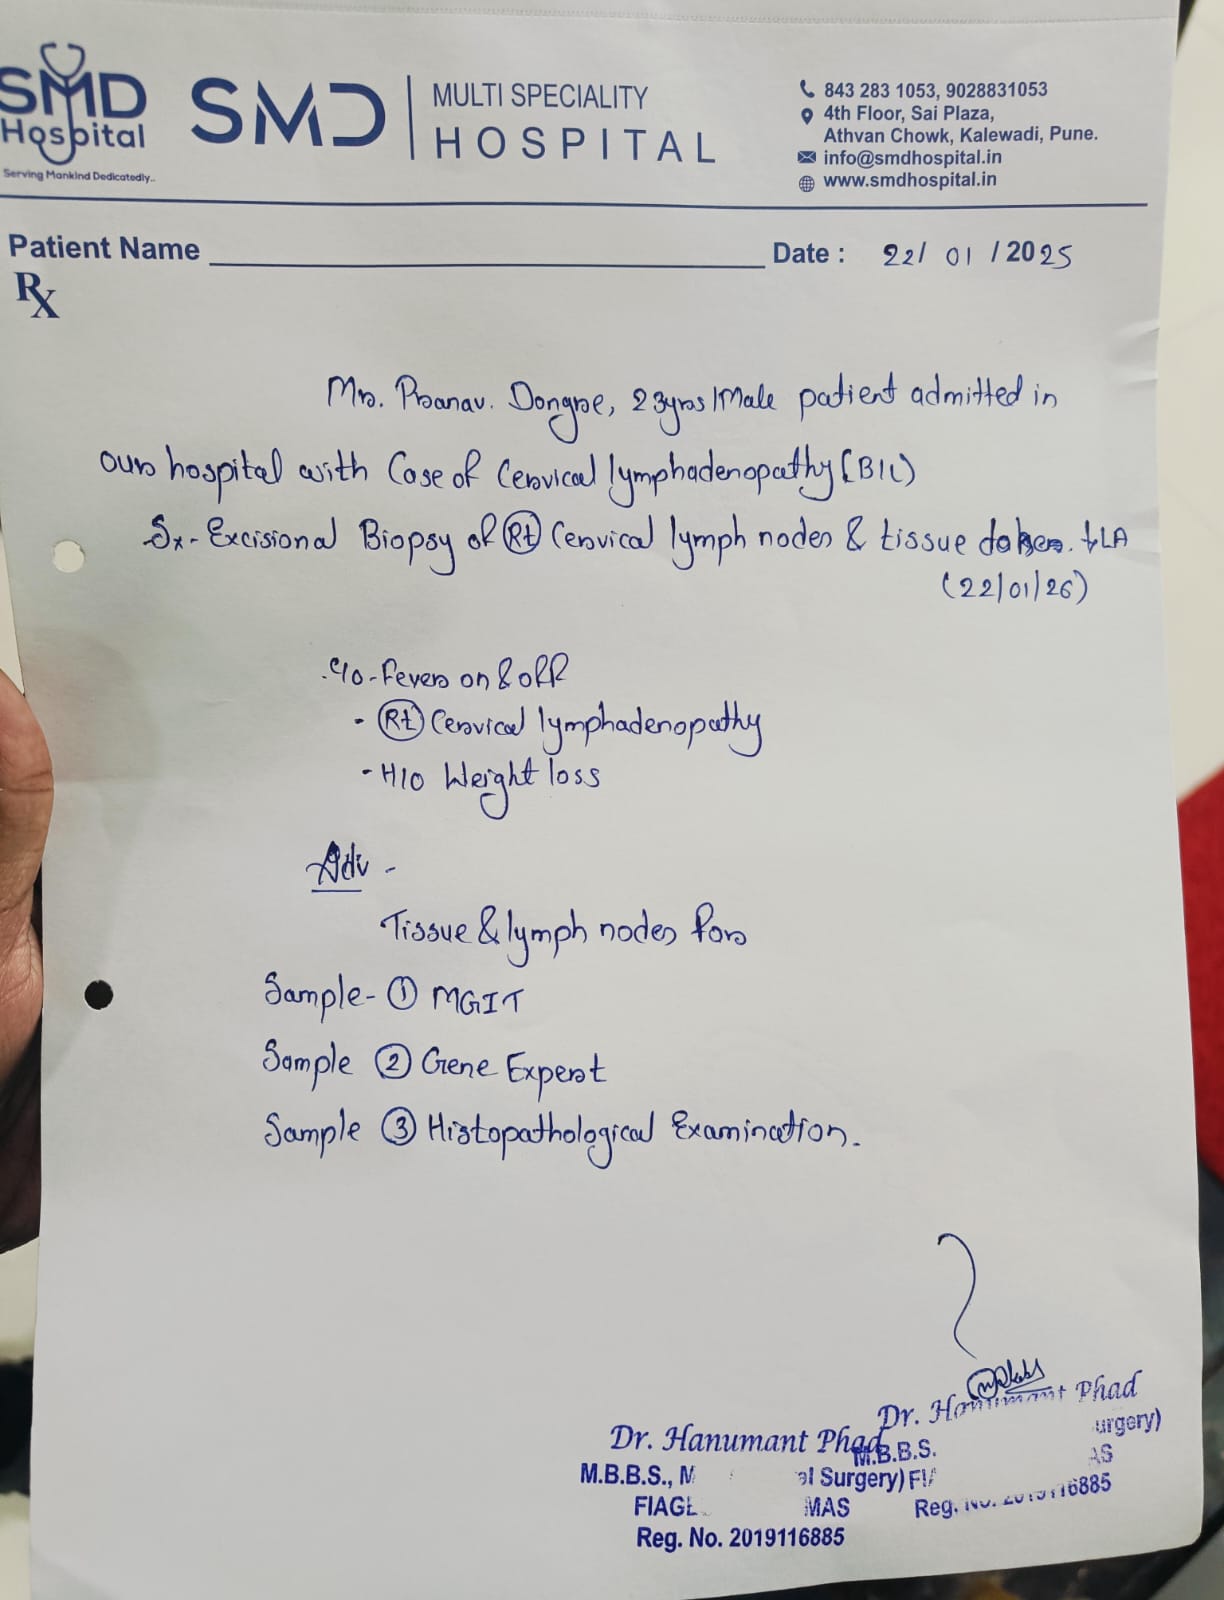 SMD
Hospital
Serving Mankind Dedicatedly..
SMD MULTI SPECIALITY
HOSPITAL
843 283 1053, 9028831053
4th Floor, Sai Plaza,
Athvan Chowk, Kalewadi, Pune.
info@smdhospital.in
www.smdhospital.in
Patient Name Date : 22/ 01 /2025
Rx
Mr. Pranav. Dongre, 23yrs/Male patient admitted in
our hospital with Case of Cervical lymphadenopathy (B/L)
Sx - Excisional Biopsy of Rt Cervical lymph nodes & tissue taken. ↓LA
(22/01/26)
C/o - Fever on & off
- Rt Cervical lymphadenopathy
- H/o Weight loss
Adv -
Tissue & lymph nodes for
Sample - ① MGIT
Sample ② Gene Expert
Sample ③ Histopathological Examination.
Dr. Hanumant Phad
M.B.B.S., M al Surgery)
FIAGE MAS
Reg. No. 2019116885
Dr. Hanumant Phad
M.B.B.S. urgery)
FI AS
Reg. No. 2019116885